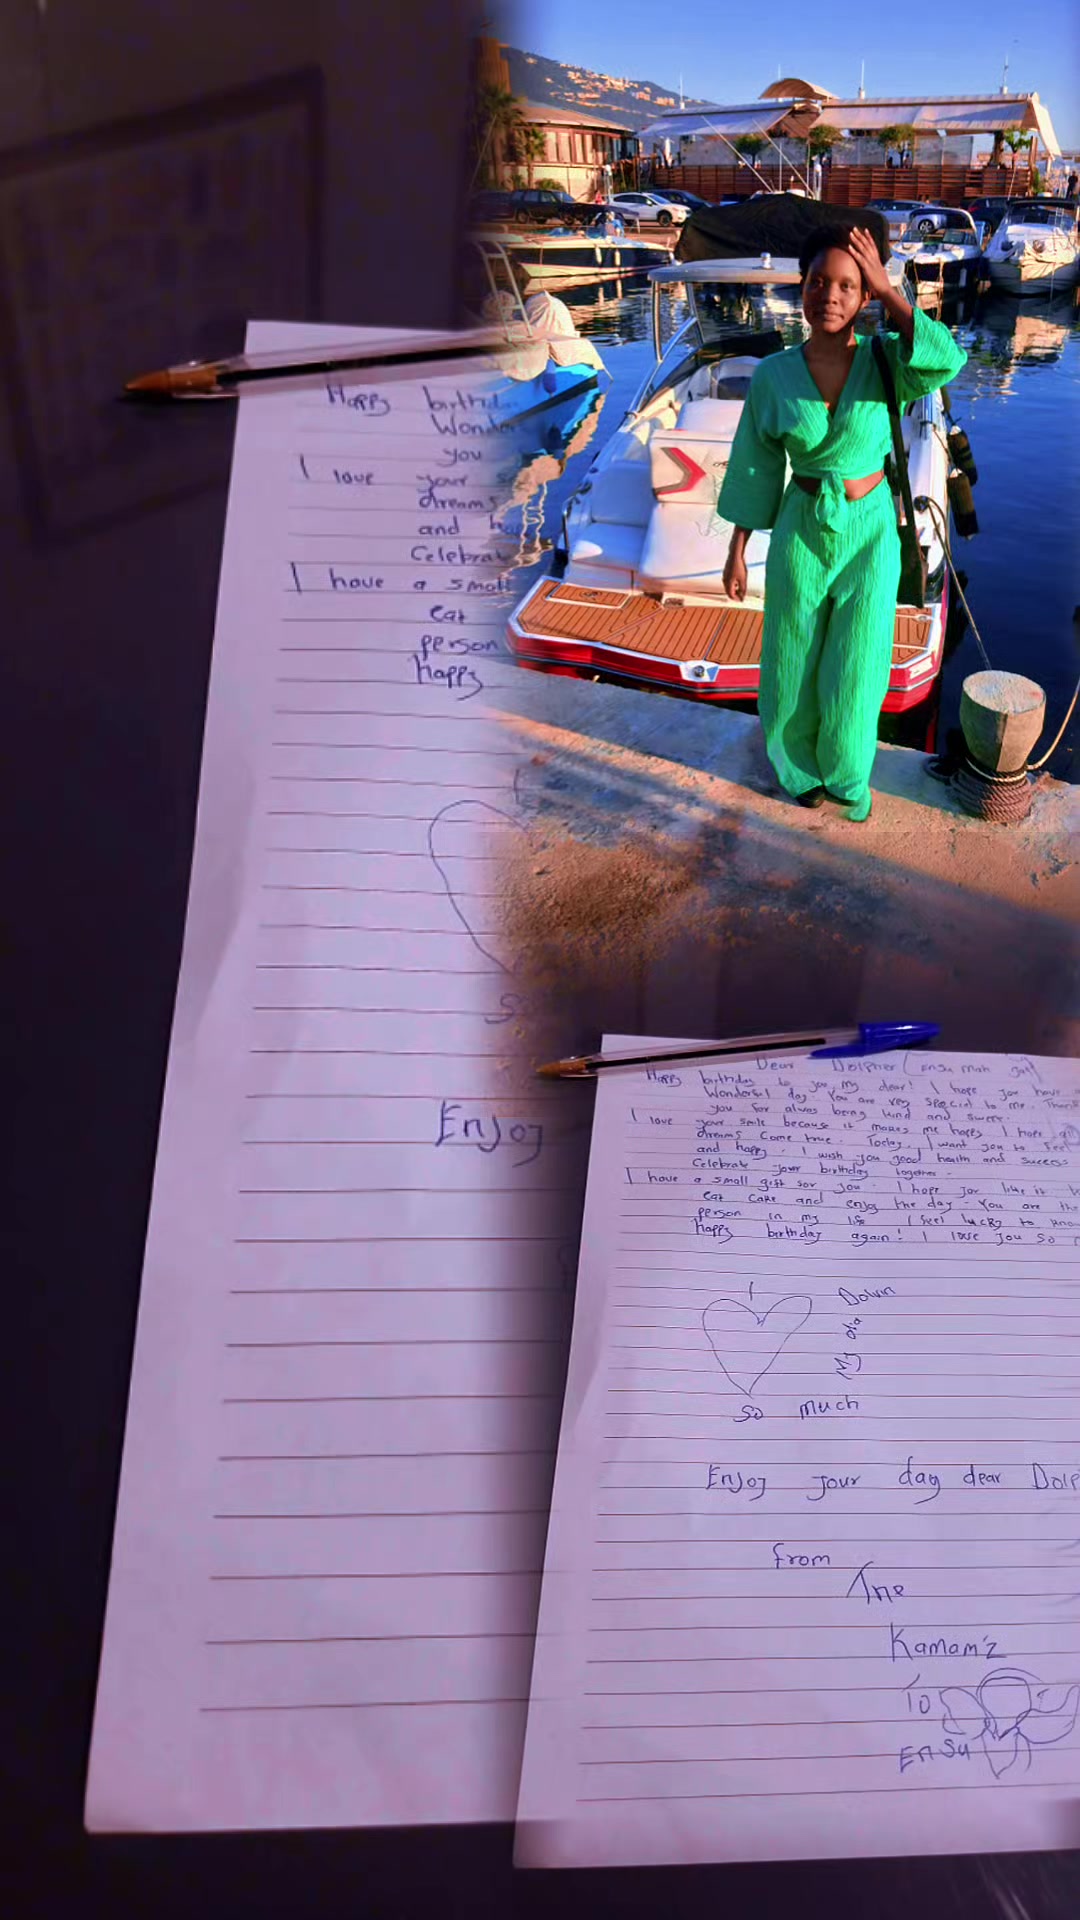 Happy birthda
Wonder
you
I love your s
dreams
and hap
Celebrat
I have a small
eat
person
happy
S
Enjoy
Dear Dolpher (Ensu mah
Happy birthday to you my dear! I hope you have a
Wonderful day. You are very special to me. Thank
you for always being kind and sweet.
I love your smile because it makes me happy. I hope all
dreams come true. Today, I want you to feel
and happy. I wish you good health and success
Celebrate your birthday together.
I have a small gift for you. I hope you like it.
eat cake and enjoy the day. You are the
person in my life. I feel lucky to know
happy birthday again! I love you so
I
so much
Enjoy your day dear Dolp
from
The
Kamam'z
To
Ensu